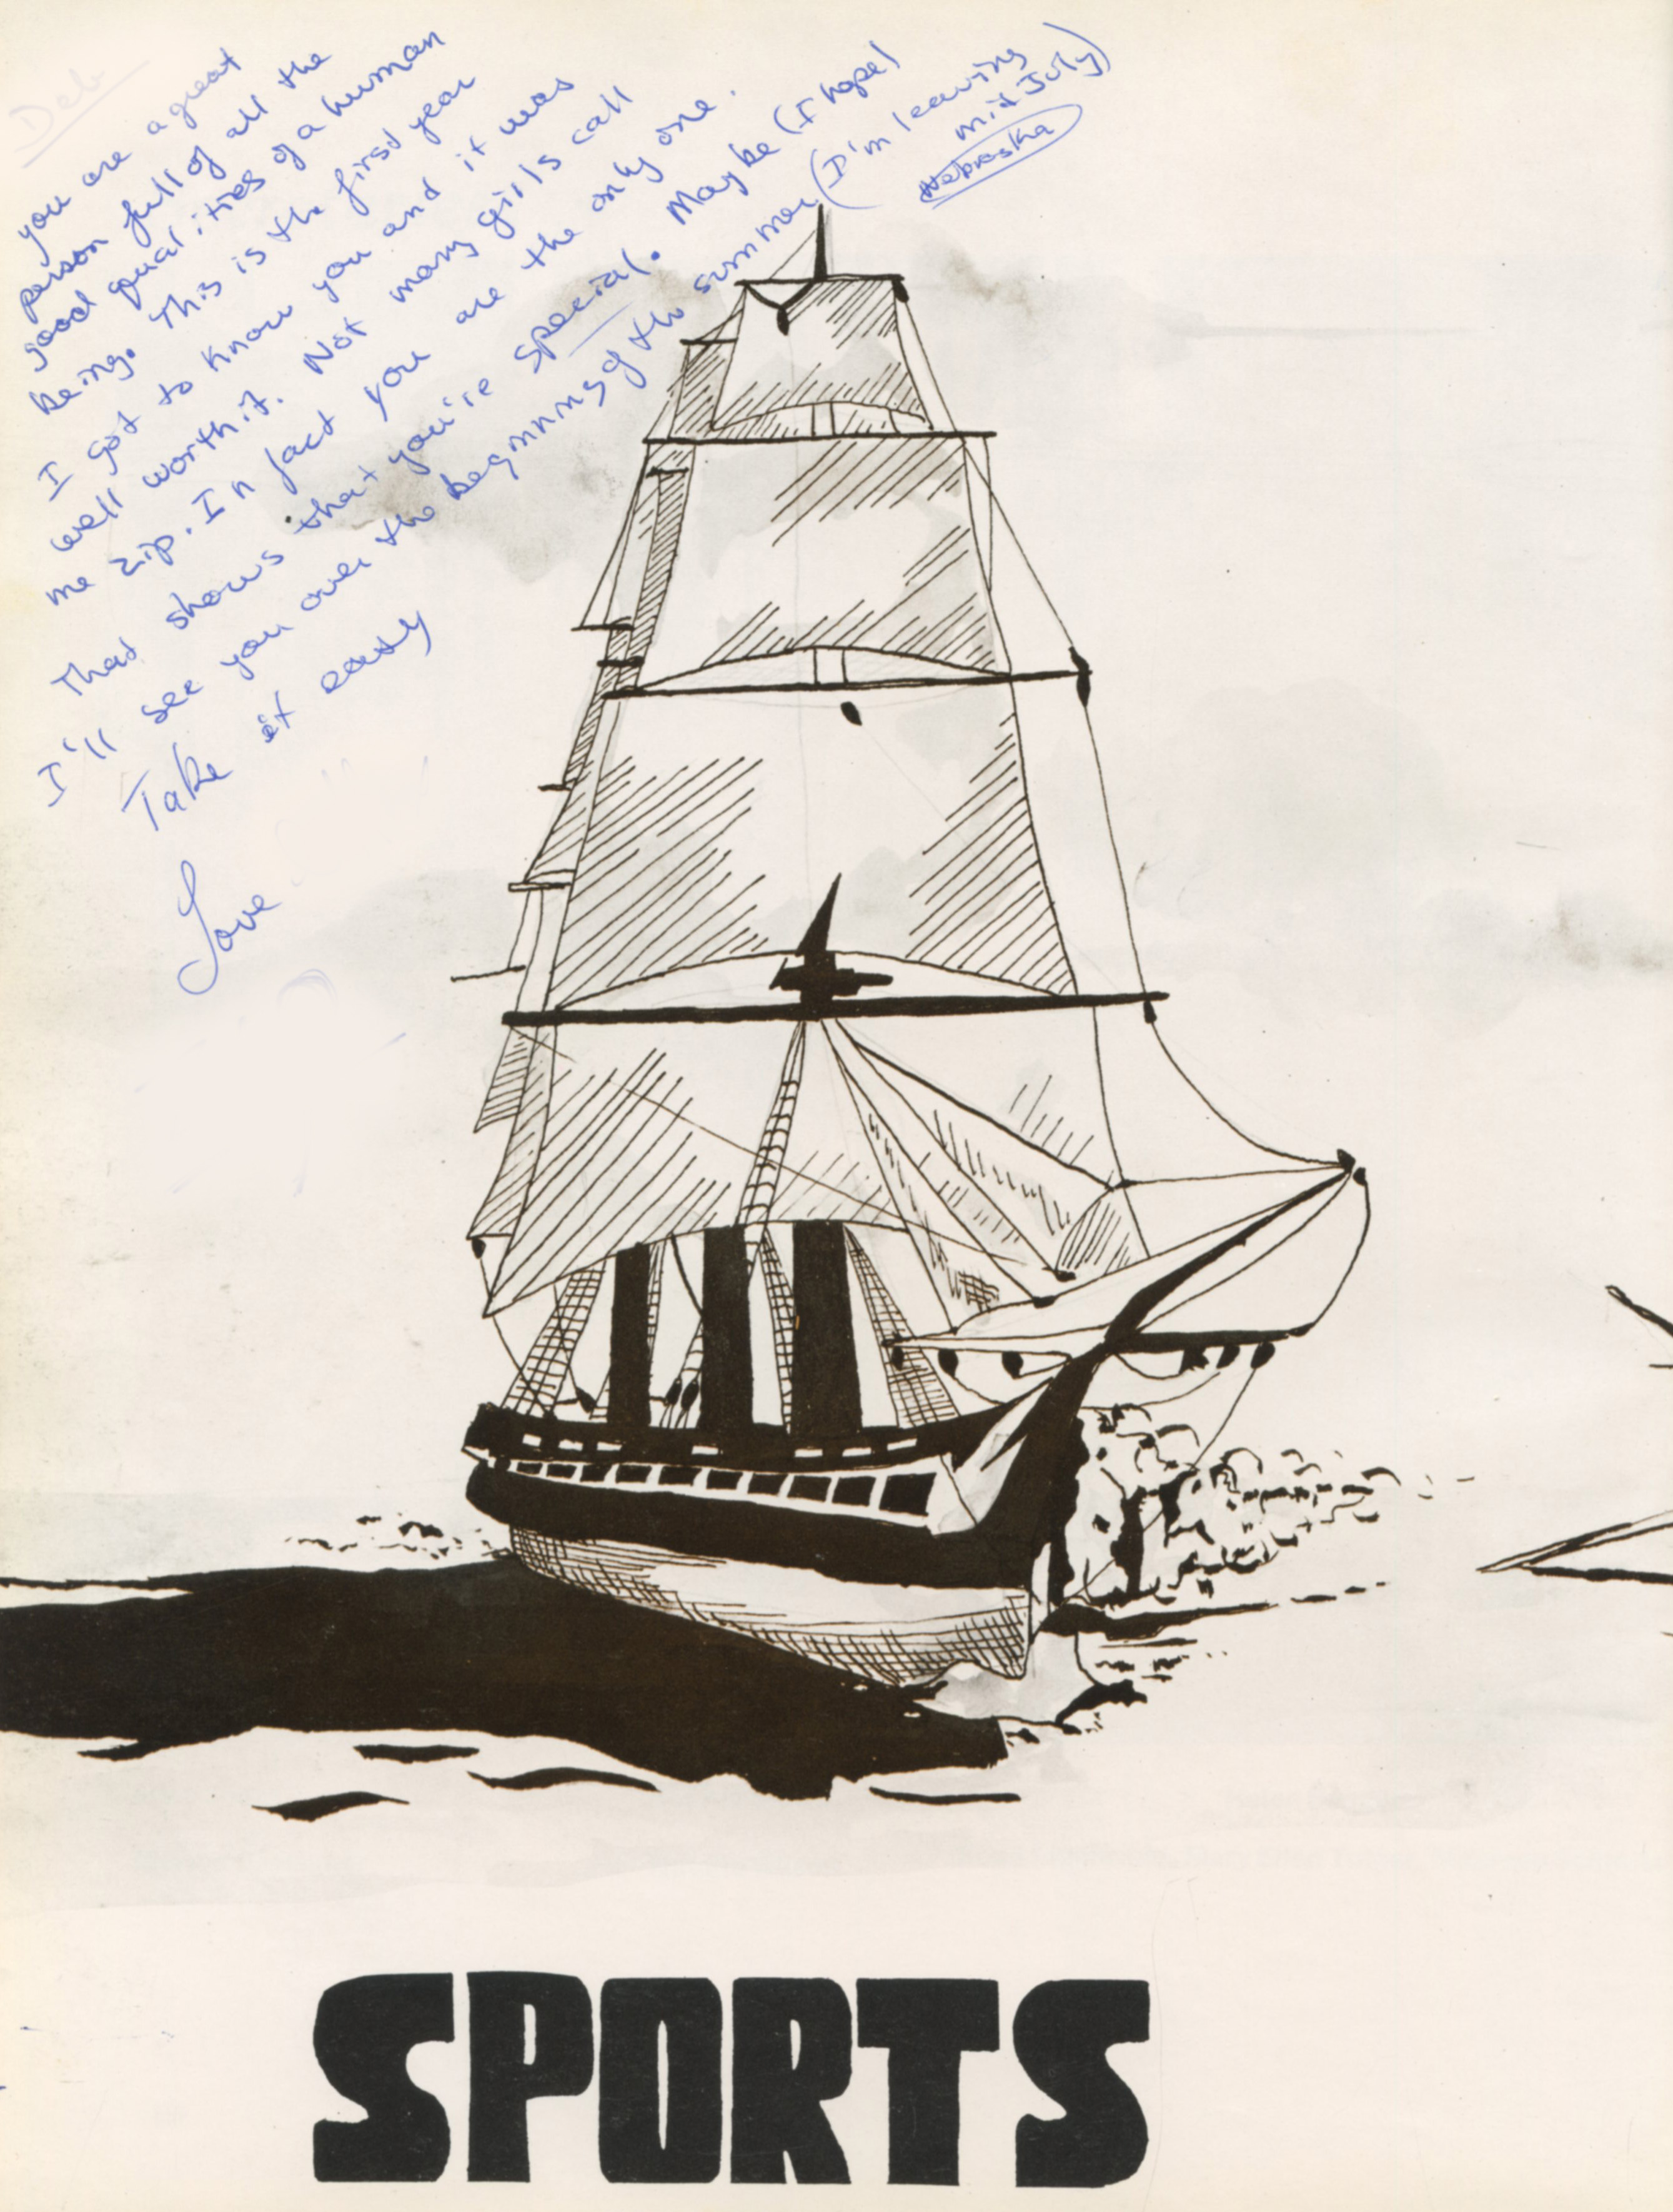 Deb
you are a great
person full of all the
good qualities of a human
being. This is the first year
I got to know you and it was
well worth it. Not many girls call
me zip. In fact you are the only one.
That shows that you're special. Maybe (I hope)
I'll see you over the beginning of the summer (I'm leaving
mid July)
Nebraska
Take it easy
Love
SPORTS